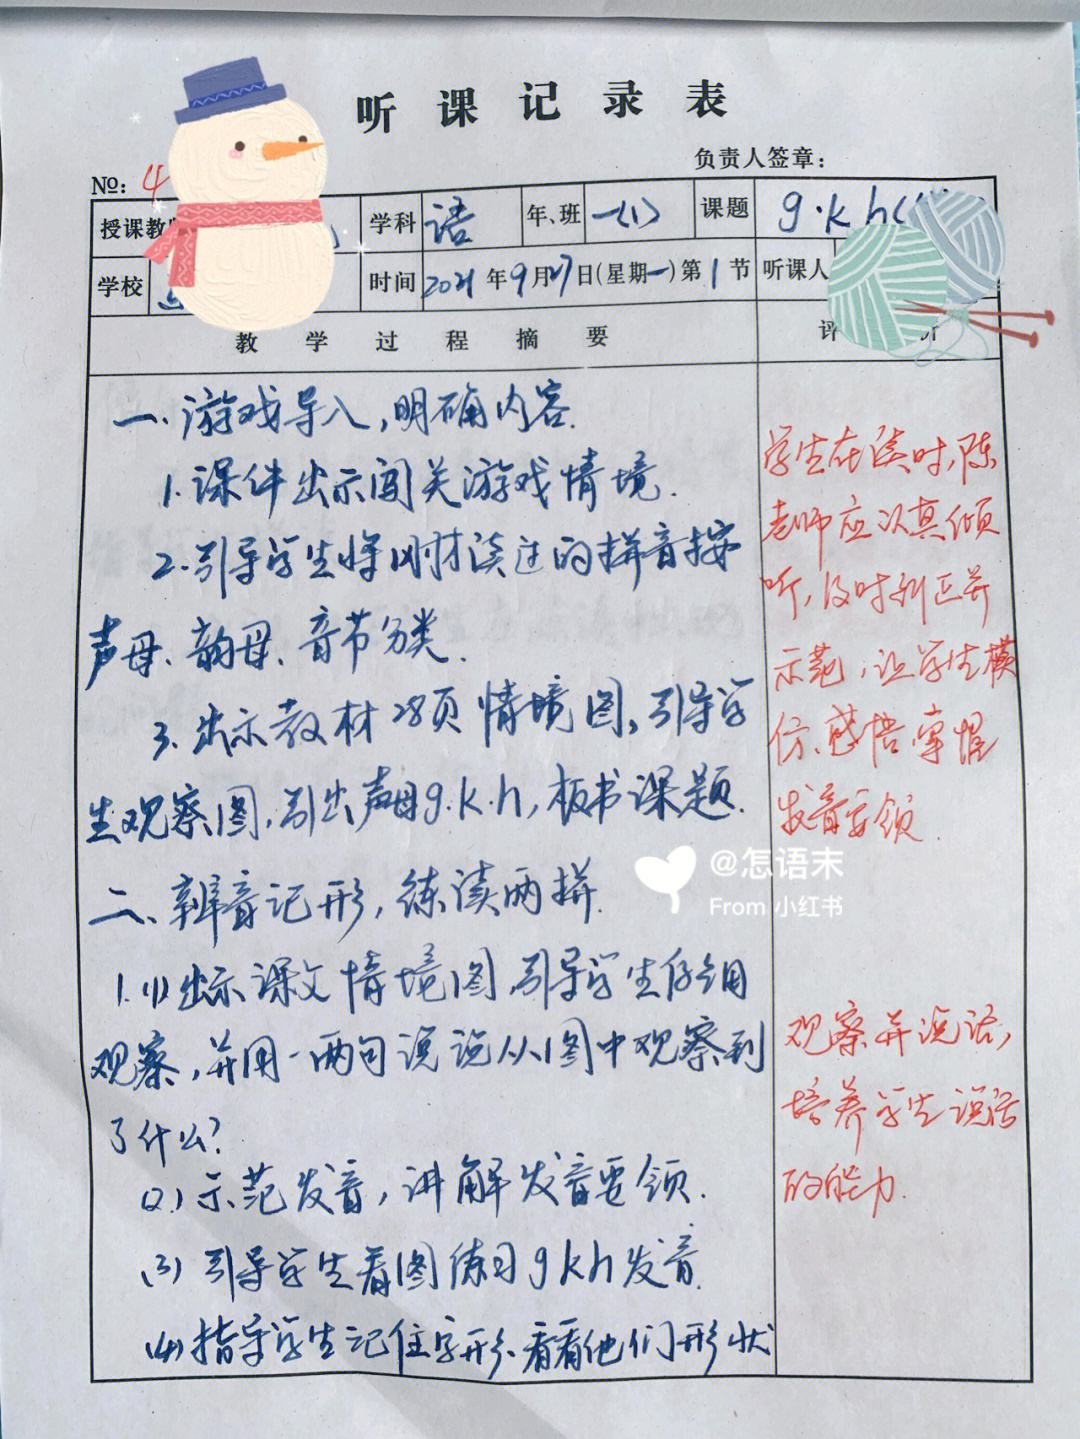 听课记录表
负责人签章:
№: 4
授课教 学科 语 年、班 一(1) 课题 g·k h(
学校 时间 2021年9月27日(星期一)第1节 听课人
教学过程摘要 评
一、游戏导入,明确内容.
1.课件出示闯关游戏情境.
2.引导学生将刚才读过的拼音按
声母、韵母、音节分类.
3.出示教材28页情境图,引导学
生观察图,引出声母g.k.h,板书课题.
二、辨音记形,练读两拼.
1.(1)出示课文情境图,引导学生仔细
观察,并用一两句说说从图中观察到
了什么?
(2)示范发音,讲解发音要领.
(3)引导学生看图练习gkh发音.
(4)指导学生记住字形.看看他们形状
学生在读时,陈
老师应认真倾
听,及时纠正并
示范,让学生模
仿、感悟、掌握
发音要领.
观察并说话,
培养学生说话
的能力.
@怎语末
From 小红书